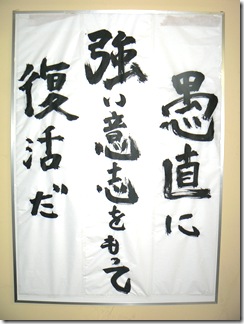 愚直に
強い意志をもって
復活だ